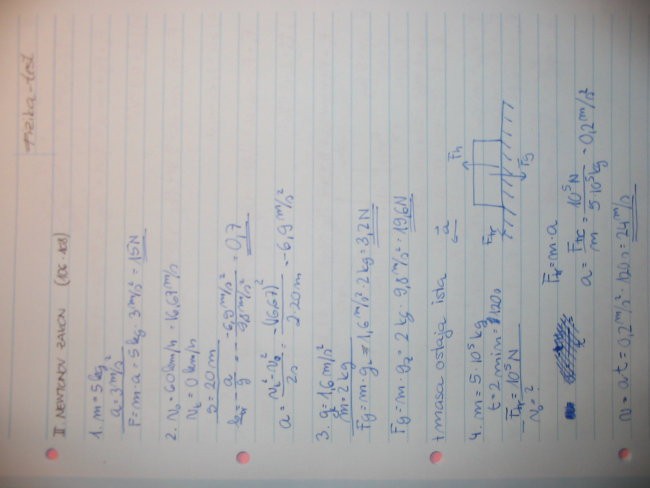 fizika-test
II NEWTONOV ZAKON
1. m = 5 kg
a = 3 m/s²
F = m · a = 5 kg · 3 m/s² = 15 N
2. v₀ = 60 km/h = 16,67 m/s
vₖ = 0 km/h
s = 20 m
= - a/g = - -6,9 m/s² / 9,8 m/s² = 0,7
a = vₖ² - v₀² / 2s = -(16,67)² / 2 · 20 m = -6,9 m/s²
3. g = 1,6 m/s²
m = 2 kg
Fg = m · g = 1,6 m/s² · 2 kg = 3,2 N
Fg = m · g₂ = 2 kg · 9,8 m/s² = 19,6 N
masa ostaja ista
a
4. m = 5 · 10⁵ kg
t = 2 min = 120 s
= 10⁵ N
v = ?
Fg
= m · a
a = / m = 10⁵ N / 5 · 10⁵ kg = 0,2 m/s²
v = a t = 0,2 m/s² · 120 s = 24 m/s